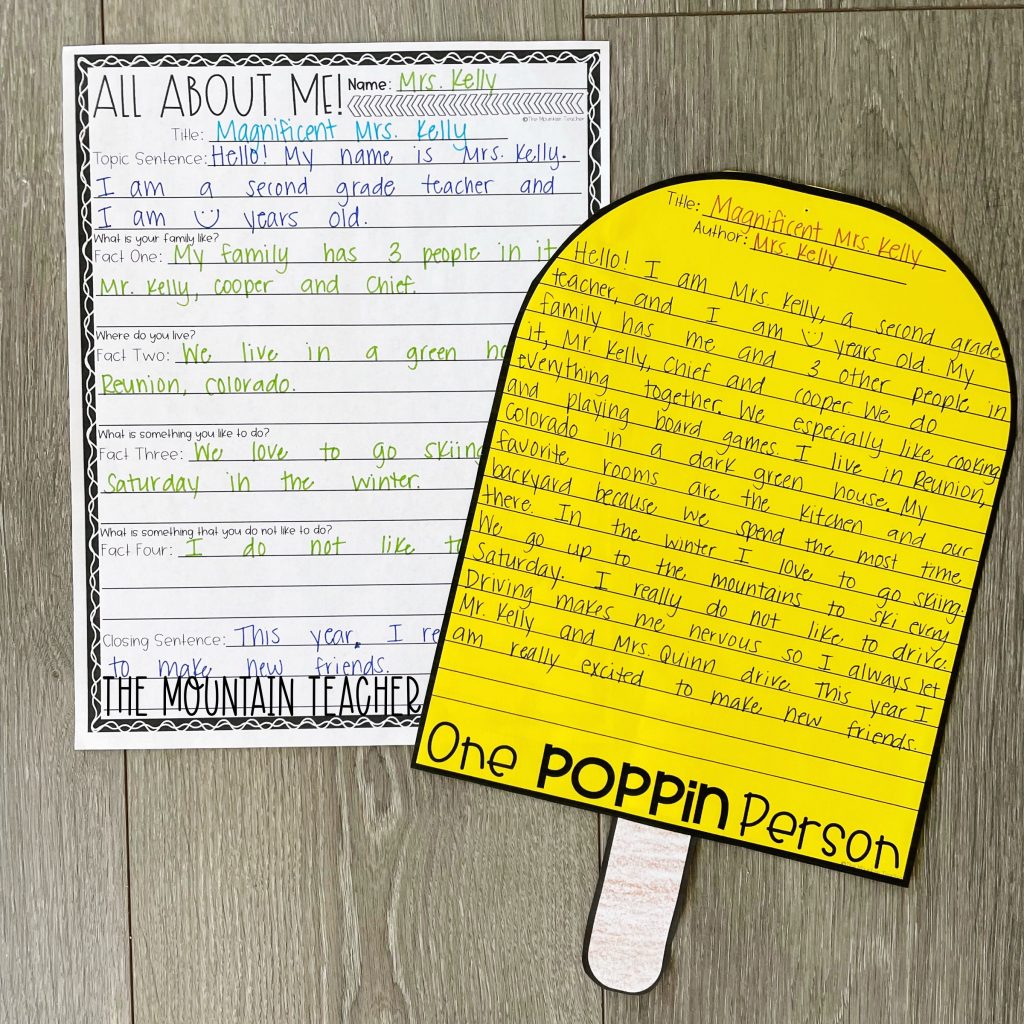 ALL ABOUT ME! Name: Mrs. Kelly
©The Mountain Teacher
Title: Magnificent Mrs. Kelly
Topic Sentence: Hello! My name is Mrs. Kelly.
I am a second grade teacher and
I am years old.
What is your family like?
Fact One: My family has 3 people in it
Mr. Kelly, Cooper and Chief.
Where do you live?
Fact Two: We live in a green
Reunion, Colorado.
What is something you like to do?
Fact Three: We love to go skiing
Saturday in the winter.
What is something that you do not like to do?
Fact Four: I do not like
Closing Sentence: This year, I
to make new friends.
THE MOUNTAIN TEACHER
Title: Magnificent Mrs. Kelly
Author: Mrs. Kelly
Hello! I am Mrs. Kelly, a second grade
teacher, and I am years old. My
family has me and 3 other people in
it, Mr. Kelly, Chief and Cooper. We do
everything together. We especially like cooking
and playing board games. I live in Reunion,
Colorado in a dark green house. My
favorite rooms are the kitchen and our
backyard because we spend the most time
there. In the winter I love to go skiing.
We go up to the mountains to ski every
Saturday. I really do not like to drive.
Driving makes me nervous so I always let
Mr. Kelly and Mrs. Quinn drive. This year I
am really excited to make new friends.
One POPPiN Person